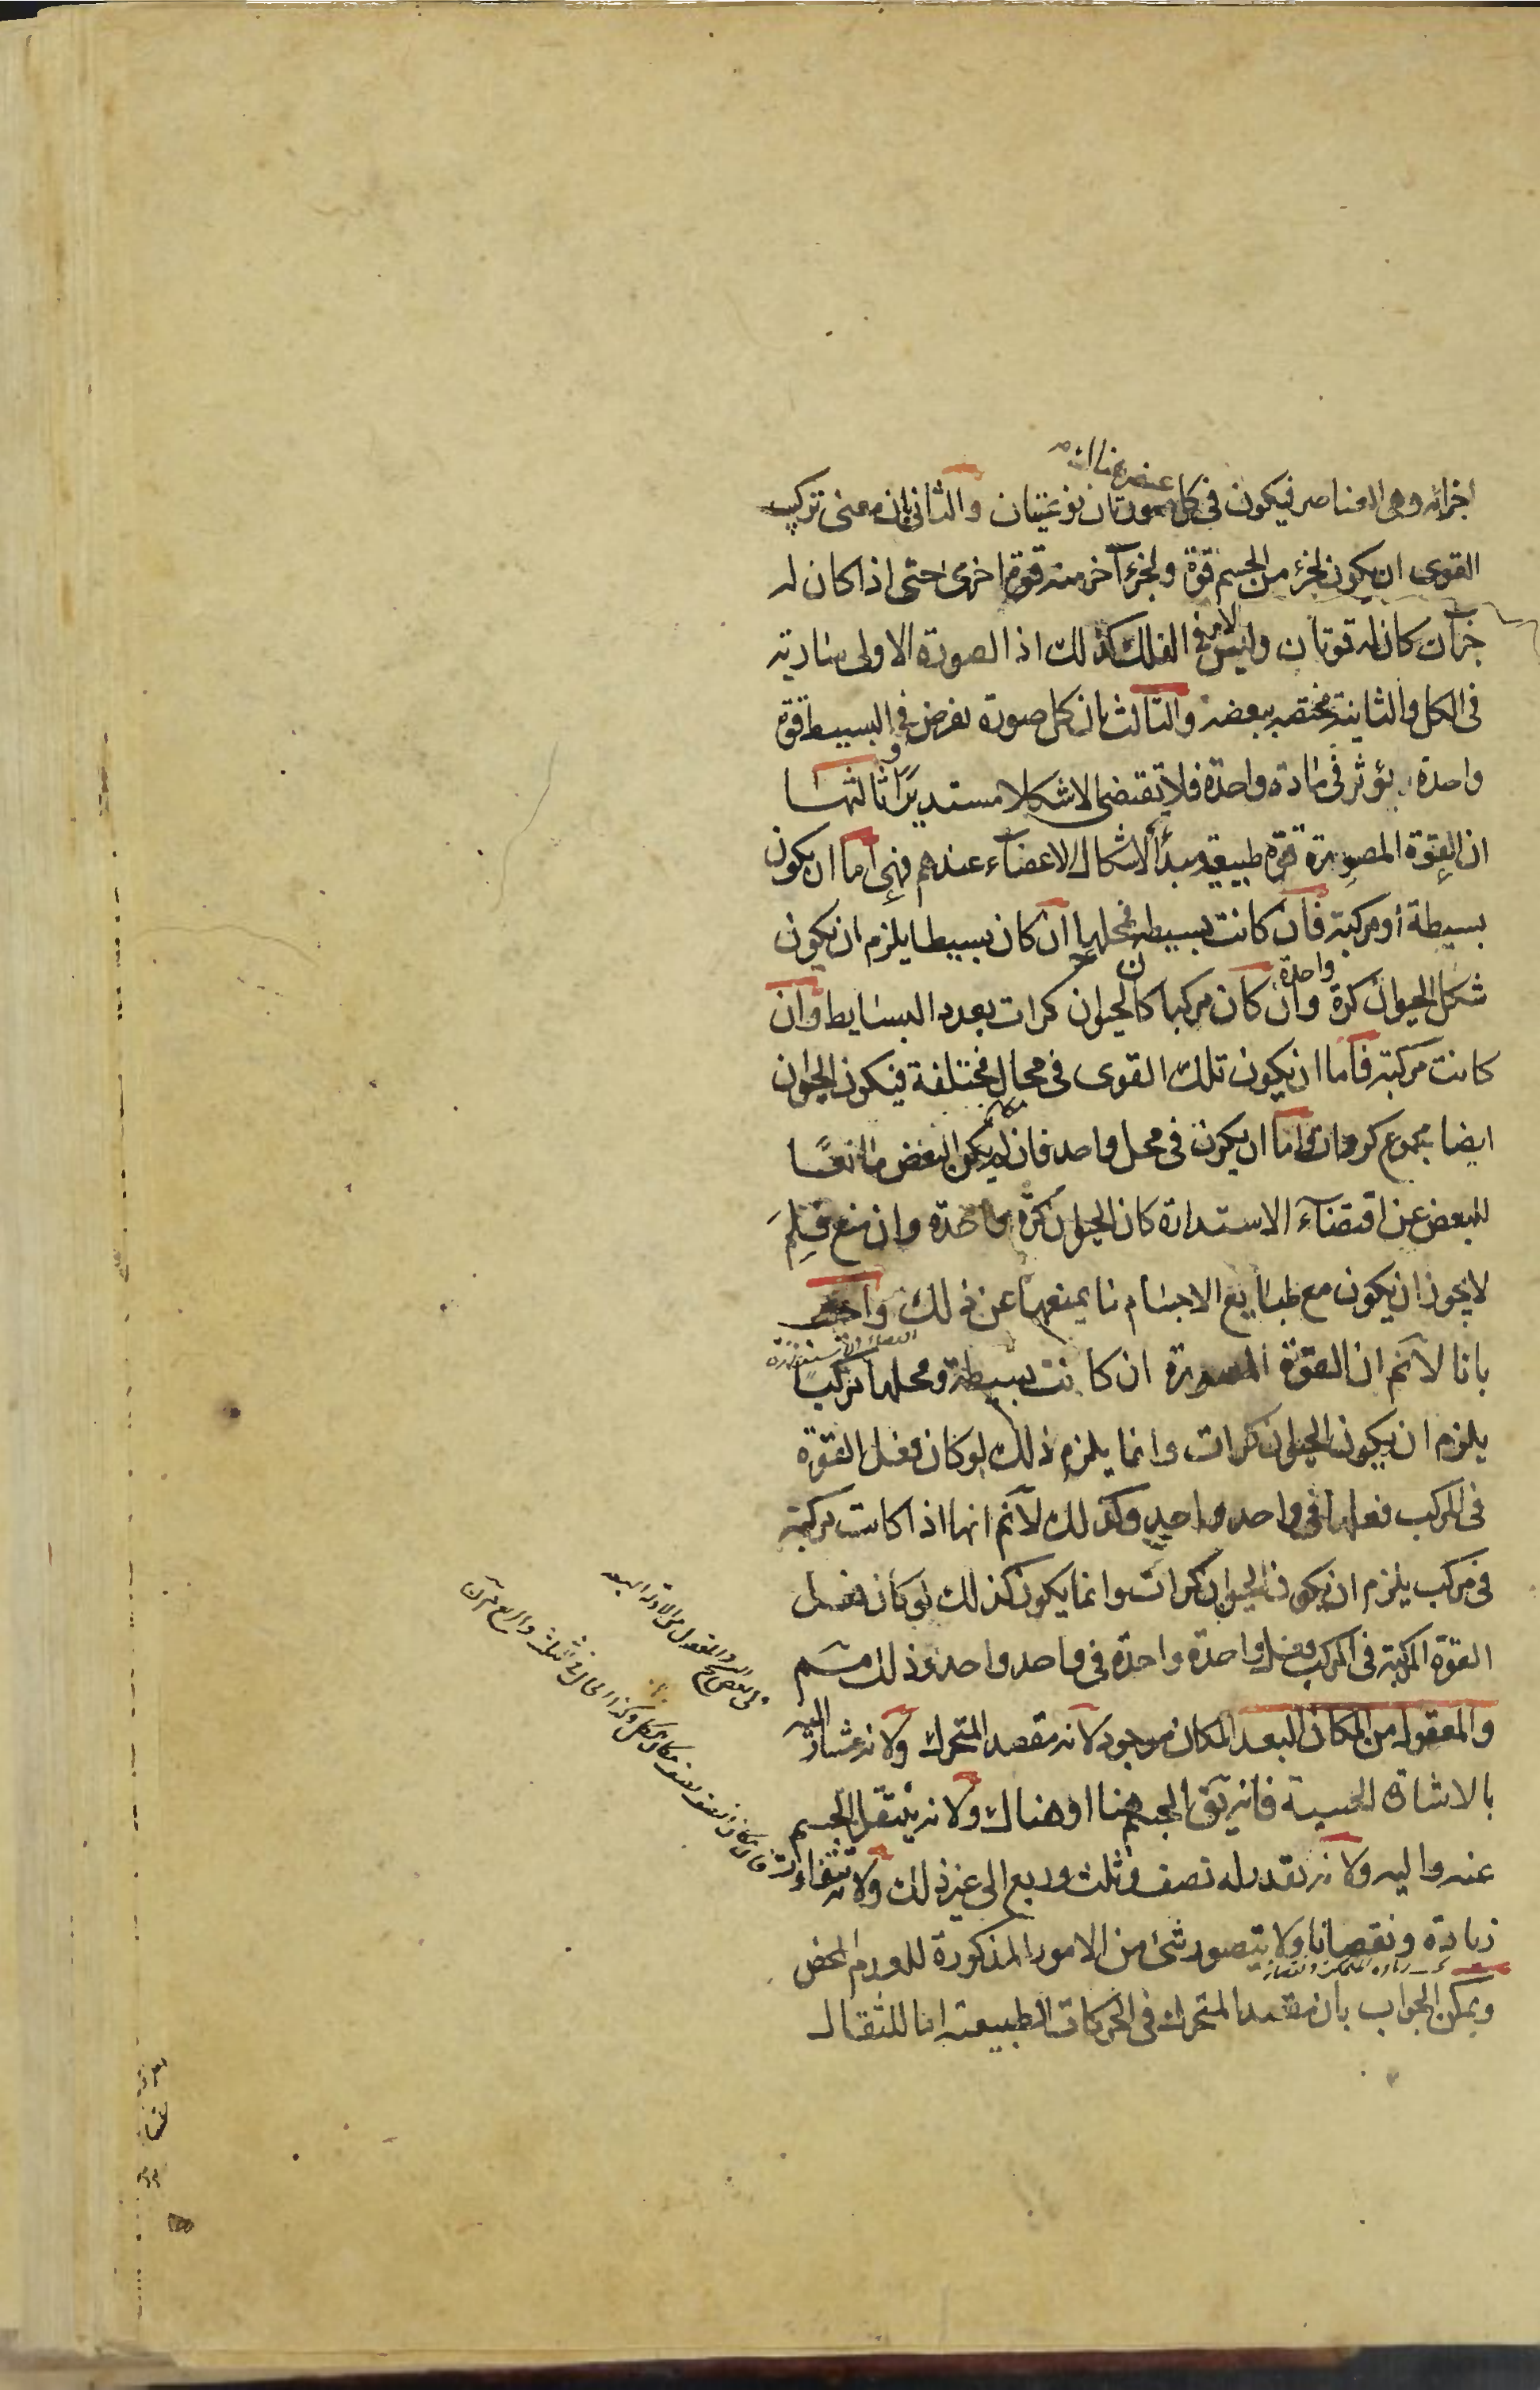 اجزائه وهى العناصر فيكون فى كل عنصر صورتان نوعيتان والثانى بان معنى تركيب
القوى ان يكون لجزء من الجسم قوة ولجزء آخر منه قوة اخرى حتى اذا كان له
جزآن كان له قوتان وليس الامر فى الفلك كذلك اذ الصورة الاولى سارية
فى الكل والثانية مختصة ببعضه والثالث بان كل صورة تفرض فى البسيط قوة
واحدة يؤثر فى مادة واحدة فلا تقتضى الا شكلا مستديرا وثالثها
ان القوة المصورة قوة طبيعية مبدأ لاشكال الاعضاء عندهم فهى اما ان يكون
بسيطة أو مركبة فان كانت بسيطة فمحلها ان كان بسيطا يلزم ان يكون
شكل الحيوان كرة واحدة وان كان مركبا كان الحيوان كرات بعدد البسايط وان
كانت مركبة فاما ان يكون تلك القوى فى محال مختلفة فيكون الحيوان
ايضا مجموع كرات واما ان يكون فى محل واحد فان لم يكن البعض مانعًا
للبعض عن اقتضآء الاستدارة كان الحيوان كرة واحدة وان منع فلِمَ
لا يجوز ان يكون مع طبايع الاجسام ما يمنعها عن ذلك واجيب
بانا لانم ان القوة المصورة ان كانت بسيطة ومحلها مركبًا
يلزم ان يكون الحيوان كرات وانما يلزم ذلك لو كان فعل القوة
فى المركب فعلها فى واحد واحد وكذلك لانم انها اذا كانت مركبة
فى مركب يلزم ان يكون الحيوان كرات وانما يكون كذلك لو كان فعل
القوة المركبة فى المركب فعل واحدة واحدة فى واحد واحد وذلك مم
والمعقول من المكان البعد المكان موجود لانه مقصد المتحرك ولانه مشار اليه
بالاشارة الحسية فانه يق الجسم هنا او هناك ولانه ينتقل الجسم
عنه واليه ولانه يقدر له نصف وثلث وربع الى غير ذلك ولانه يتفاوت
زيادة ونقصانا ولا يتصور شئ من الامور المذكورة للعدم المحض
ويمكن الجواب بان مقصد المتحرك فى الحركات الطبيعية اما للثقال